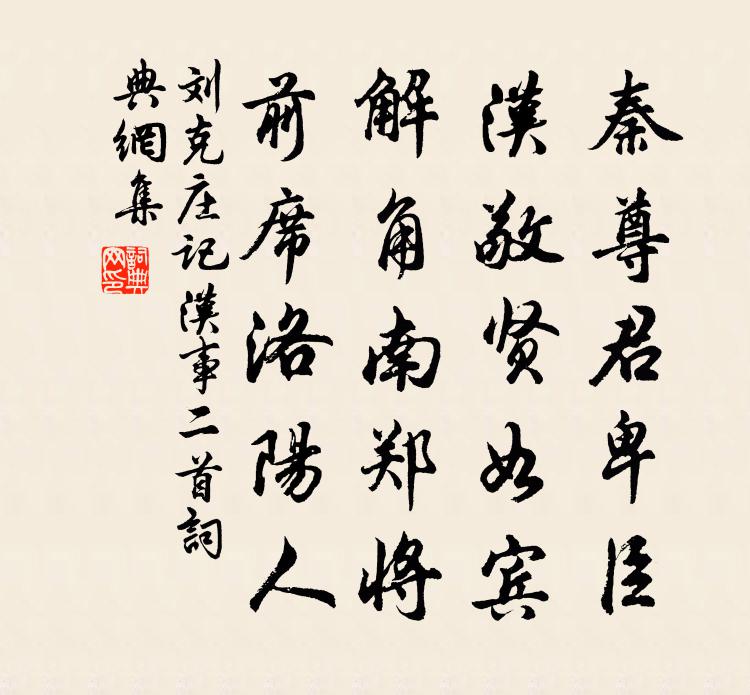 秦尊君卑臣
漢敬贤如宾
解角南郑將
前席洛陽人
刘克庄记漢事二首詞
典網集
詞典
网印